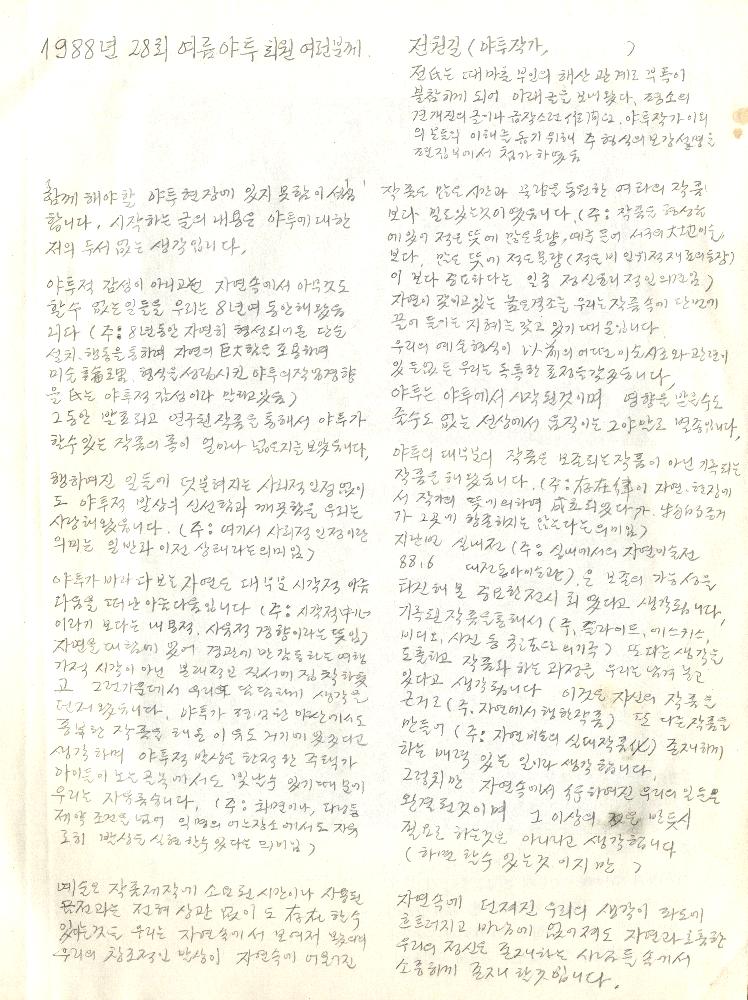 1988년 28회 여름야투 회원 여러분께.
함께 해야할 야투현장에 있지 못함이
합니다. 시작하는 글의 내용은 야투에 대한
저의 두서 없는 생각입니다.
야투적 감성이 아니고는 자연속에서 아무것도
할수 없는 일들을 우리는 8년여 동안 해왔습
니다 (주: 8년동안 자연히 형성되어온 단순
설치. 행동을 통하여 자연의 巨大함은 포용하며
형식을 성립시킨 야투의 작업경향
을 氏는 야투적 감성이라 말하고있음)
그동안 발표되고 연구된 작품을 통해서 야투가
할수있는 작품의 폭이 얼마나 넓은지를 보았습니다,
행하여진 일들에 덧붙혀지는 사회적 인정 없이
도 야투적 발상의 신선함과 깨끗함을 우리는
사랑해왔습니다. (주: 여기서 사회적 인정이란
의미는 일반과 이전 상태라는 의미임)
야투가 바라다 보는 자연은 대부분 시각적 아름
다움을 떠난 아름다움입니다 (주: 시각적中心
이라기 보다는 내면적, 사유적 경향이라는 뜻임)
자연을 대함에 있어 경관에 만감동하는 여행
가적 시각이 아닌 본래적고 질서에 집착하였
고 그런가운데서 우리의 담담하게 생각을
던져왔습니다. 야투가 한산에서도
풍부한 작품을 해온 이유도 거기에 있었다고
생각하며 야투적 발상은 한정된 주택가
아이들이 노는 골목에서도 빛날수 있기 때문에
우리는 자유롭습니다. (주: 화면이나,
제약 조건을 넘어 익명의 어느장소에서도 자유
로히 발상을 실현할수 있다는 의미임)
예술은 작품제작에 소요된 시간이나 사용된
금전과는 전혀 상관 없이도 存在 할수
있다는것을 우리는 자연속에서 보여져 왔으며
우리의 창조적인 발상이 자연속에 어울어진
전원길 (야투작가, )
전氏는 때마츰 부인의 해산 관계로 부득이
불참하게 되어 아래글을 보내왔다. 평소의
견개진의 글이나 갑작스런 야투작가 이외
의 분들의 이해를 돕기 위해 주 형식의 보강설명을
편집부에서 첨가하였음
작품은 많은 시간과 물량을 동원한 여타의 작품
보다 밀도있는것이었습니다. (주: 작품을 형성함
에 있어 적은 뜻에 많은물량, 예를들어 서구의 大地미술,
보다, 많은 뜻에 적은물량 (적은비인위적재료의등장)
이 보다 중요하다는 일종 정신논리적인 의미임)
자연이 갖이고있는 높은격조를 우리는 작품속에 단번에
끌어 들이는 지혜를 갖고 있기 때문입니다.
우리의 예술형식이 以前의 어떠한 미술사조와 관련이
있든 없든 우리는 독특한 표정을 갖었습니다,
야투는 야투에서 시작된것이며 영향을 받을수도
줄수도 없는 선상에서 움직이는 그야말로 별종입니다,
야투의 대부분의 작품은 보존되는 작품이 아닌 기록되는
작품을 해왔습니다. (주: 자연.현장에
서 작가의 뜻에의하여 성효되었다가.
가 그곳에 항존하지는 않는다는 의미임)
지난번 실내전 (주: 실내에서의 자연미술전
88.6 대전 미술관)은 보존의 가능성을
타진해 본 중요한 전시회 였다고 생각됩니다.
기록된 작품을통해서 (주, 슬라이드, 에스키스,
비데오, 사진 등 ) 또 다른 생각을
도출하고 작품화 하는 과정을 우리는 남겨 놓고
있다고 생각됩니다 이것은 자신의 작품을
근거로 (주. 자연에서 행한작품) 또 다른작품을
만들어 (주: 자연미술의 실내작품化) 존재하게
하는 매력 있는 일이라 생각합니다.
그렇지만 자연속에서 行하여진 우리의 일들은
완결된것이며 그 이상의 것을 반듯시
필요로 하는것은 아니라고 생각합니다
(하면 할수 있는것이지만 )
자연속에 던져진 우리의 생각이 파도에
흐트러지고 바람에 없어져도 자연과 호흡한
우리의 정신은 존재하는 사람들 속에서
소중하게 존재 할것입니다.